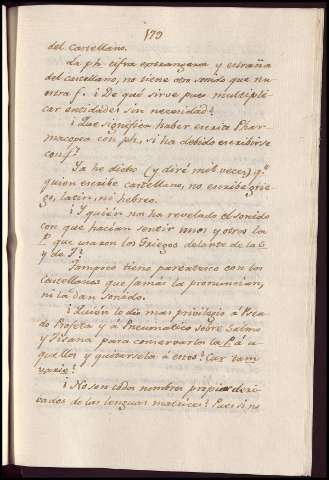 179
del castellano.
La ph. cifra extrangera y extraña
del castellano, no tiene otro sonido que nu
estra f. ¿De qué sirve pues multipli
car entidades sin necesidad?
¿Que significa haber escrito Phar
macopea con ph, si ha debido escribirse
con f?
Ya he dicho (y diré mil veces) q.e
quien escribe castellano, no escribe grie
go, latin, ni hebreo.
¿Y quién nos ha revelado el sonido
con que hacían sentir unos y otros la
P. que usaron los Griegos delante de la
y de
Tampoco tiene parentesco con los
Castellanos que jamas la pronuncian,
ni la dan sonido.
¿Quién le dio mas privilegio á Pseu
do Profeta y á Pneumatico sobre Salmo
y Tisana para conservarlos la P. á a
quellos y quitarsela á estos?
¿No son todos nombres propios deri
vados de las lenguas matrices? Pues si no